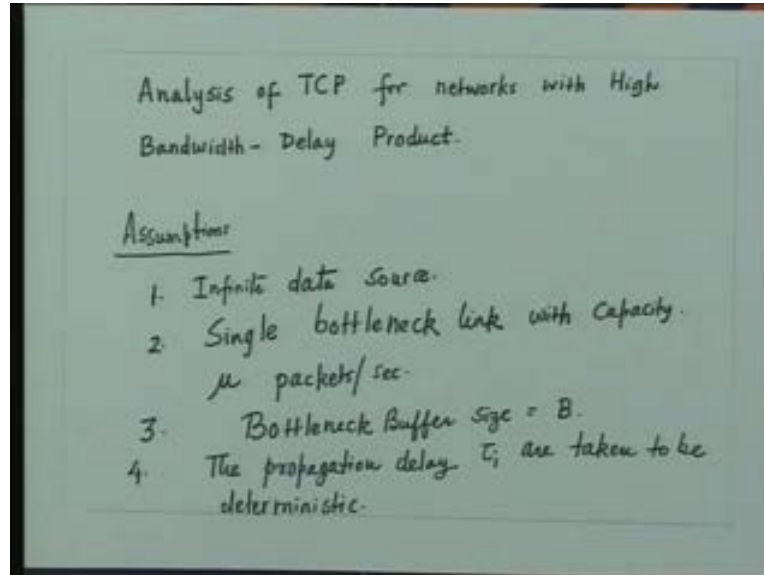 Analysis of TCP for networks with High
Bandwidth - Delay Product.
Assumptions
1. Infinite data source.
2. Single bottleneck link with Capacity.
μ packets/sec.
3. Bottleneck Buffer size = B.
4. The propagation delay τi are taken to be
deterministic.